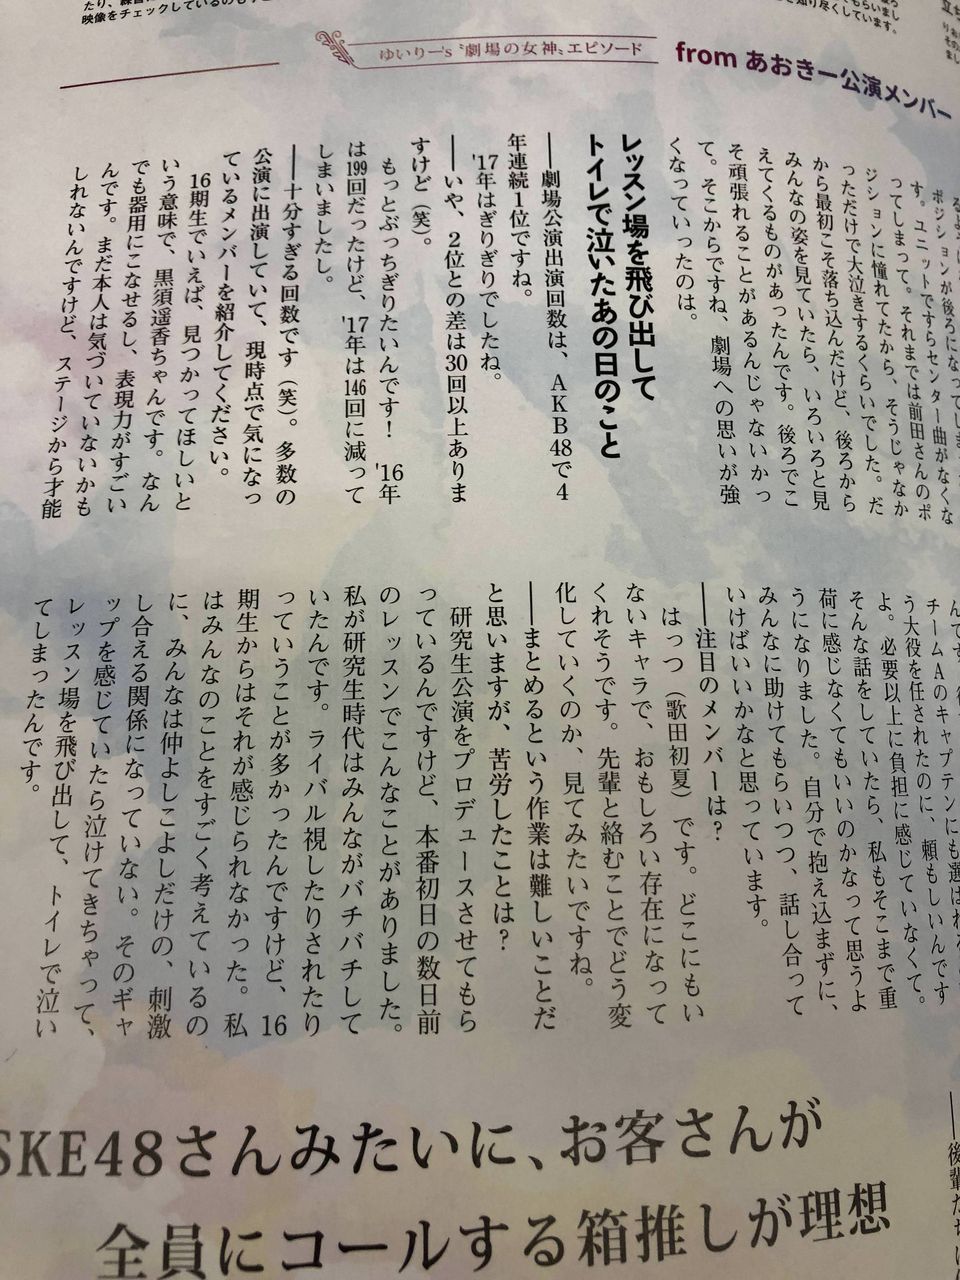 映像をチェックしているのも
知り尽くしています。
ゆいりー's〝劇場の女神〟エピソード
from あおきー公演メンバー
ポジションが後ろになってしま
す。ユニットですらセンター曲がなくな
ってしまって。それまでは前田さんのポ
ジションに憧れてたから、そうじゃなか
っただけで大泣きするくらいでした。だ
から最初こそ落ち込んだけど、後ろから
みんなの姿を見ていたら、いろいろと見
えてくるものがあったんです。後ろでこ
そ頑張れることがあるんじゃないかっ
て。そこからですね、劇場への思いが強
くなっていったのは。
レッスン場を飛び出して
トイレで泣いたあの日のこと
──劇場公演出演回数は、AKB48で4
年連続1位ですね。
'17年はぎりぎりでしたね。
──いや、2位との差は30回以上ありま
すけど(笑)。
もっとぶっちぎりたいんです! '16年
は199回だったけど、'17年は146回に減って
しまいましたし。
──十分すぎる回数です(笑)。多数の
公演に出演していて、現時点で気になっ
ているメンバーを紹介してください。
16期生でいえば、見つかってほしいと
いう意味で、黒須遥香ちゃんです。なん
でも器用にこなせるし、表現力がすごい
んです。まだ本人は気づいていないかも
しれないんですけど、ステージから才能
チームAのキャプテンにも選ばれ
う大役を任されたのに、頼もしいんです
よ。必要以上に負担に感じていなくて。
そんな話をしていたら、私もそこまで重
荷に感じなくてもいいのかなって思うよ
うになりました。自分で抱え込まずに、
みんなに助けてもらいつつ、話し合って
いけばいいかなと思っています。
──注目のメンバーは?
はっつ(歌田初夏)です。どこにもい
ないキャラで、おもしろい存在になって
くれそうです。先輩と絡むことでどう変
化していくのか、見てみたいですね。
──まとめるという作業は難しいことだ
と思いますが、苦労したことは?
研究生公演をプロデュースさせてもら
っているんですけど、本番初日の数日前
のレッスンでこんなことがありました。
私が研究生時代はみんながバチバチして
いたんです。ライバル視したりされたり
っていうことが多かったんですけど、16
期生からはそれが感じられなかった。私
はみんなのことをすごく考えているの
に、みんなは仲よしこよしだけの、刺激
し合える関係になっていない。そのギャ
ップを感じていたら泣けてきちゃって、
レッスン場を飛び出して、トイレで泣い
てしまったんです。
──後輩たち
SKE48さんみたいに、お客さんが
全員にコールする箱推しが理想